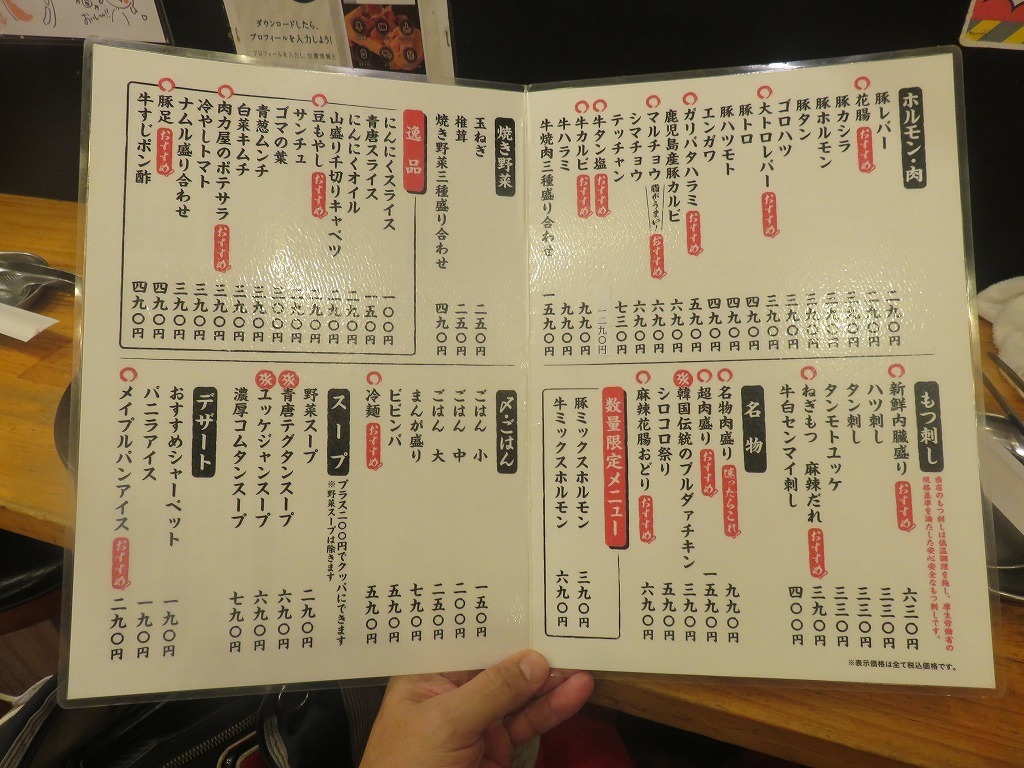 ホルモン・肉
豚レバー 二九〇円
花腸 おすすめ 二九〇円
豚カシラ 三九〇円
豚ホルモン 三九〇円
豚タン 三九〇円
ゴロハツ 三九〇円
大トロレバー おすすめ 三九〇円
豚トロ 四九〇円
豚ハツモト 四九〇円
エンガワ 四九〇円
ガリバタハラミ おすすめ 五九〇円
鹿児島産豚カルビ 六九〇円
マルチョウ 脂がうまい! おすすめ 六九〇円
シマチョウ 六九〇円
テッチャン 七三〇円
牛タン塩 おすすめ 一二九〇円
牛カルビ おすすめ 九九〇円
牛ハラミ 九九〇円
牛焼肉三種盛り合わせ 一五九〇円
もつ刺し
当店のもつ刺しは低温調理を施し、厚生労働省の
規格基準を満たした安心安全なもつ刺しです。
新鮮内臓盛り おすすめ 六三〇円
ハツ刺し 三三〇円
タン刺し 三三〇円
タンモトユッケ 三三〇円
ねぎもつ 麻辣だれ おすすめ 三九〇円
牛白センマイ刺し 四〇〇円
名物
名物肉盛り 迷ったらこれ 九九〇円
超肉盛り おすすめ 一五九〇円
韓国伝統のブルダァチキン 三九〇円
シロコロ祭り 五九〇円
麻辣花腸おどり おすすめ 六九〇円
数量限定メニュー
豚ミックスホルモン 三九〇円
牛ミックスホルモン 六九〇円
※表示価格は全て税込価格です。
焼き野菜
玉ねぎ 二五〇円
椎茸 二五〇円
焼き野菜三種盛り合わせ 四九〇円
逸品
にんにくスライス 一〇〇円
青唐スライス 一五〇円
にんにくオイル 二九〇円
山盛り千切りキャベツ 一九〇円
豆もやし おすすめ 二九〇円
サンチュ 二九〇円
ゴマの葉 三〇〇円
青葱ムンチ 三九〇円
白菜キムチ 三九〇円
肉力屋のポテサラ おすすめ 三九〇円
冷やしトマト 三九〇円
ナムル盛り合わせ 三九〇円
豚足 おすすめ 四九〇円
牛すじポン酢 四九〇円
〆・ごはん
ごはん 小 一五〇円
ごはん 中 二〇〇円
ごはん 大 二五〇円
まんが盛り 七九〇円
ビビンバ 五九〇円
冷麺 おすすめ 五九〇円
スープ
プラス二〇〇円でクッパにできます
※野菜スープは除きます
野菜スープ 二九〇円
青唐テグタンスープ 六九〇円
ユッケジャンスープ 六九〇円
濃厚コムタンスープ 七九〇円
デザート
おすすめシャーベット 一九〇円
バニラアイス 一九〇円
メイプルパンアイス おすすめ 二九〇円
ダウンロードしたら、
プロフィールを入力しよう!